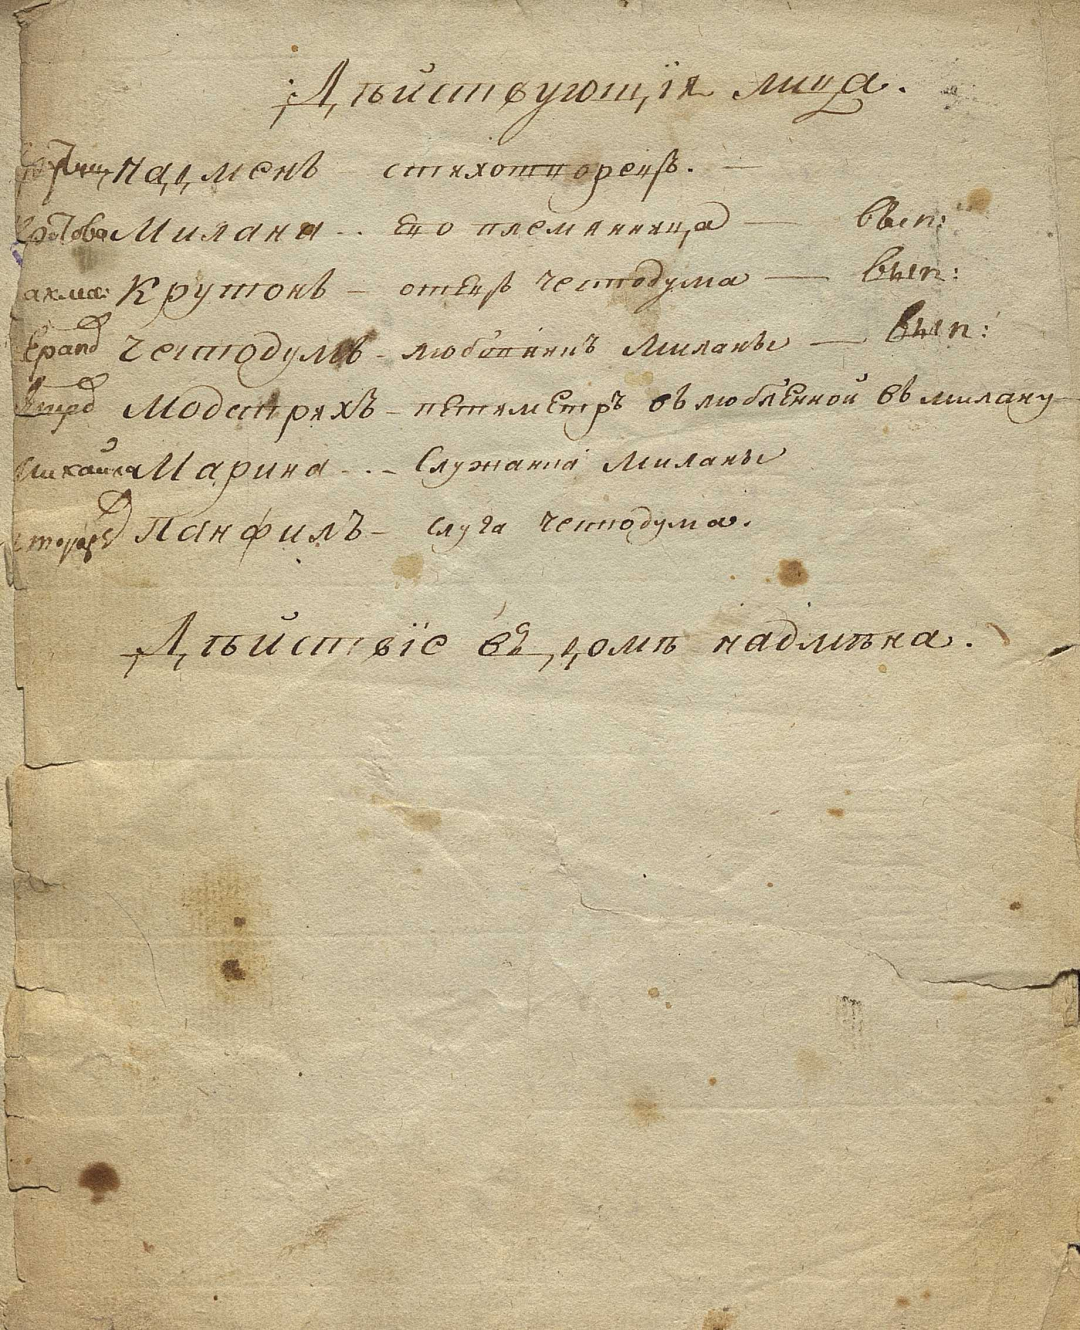 Дѣйствующія лица.
Надменъ стихотворецъ. —
Милана .. Ево племянница — вып:
Крутонъ — отецъ Честодума — вып:
Честодумъ - любовникъ Миланы — вып:
Модстрихъ - петиметръ влюбленной въ милану
Марина ... Служанка Миланы
Панфилъ - слуга Честодума.
Дѣйствіе въ домѣ надмѣна.